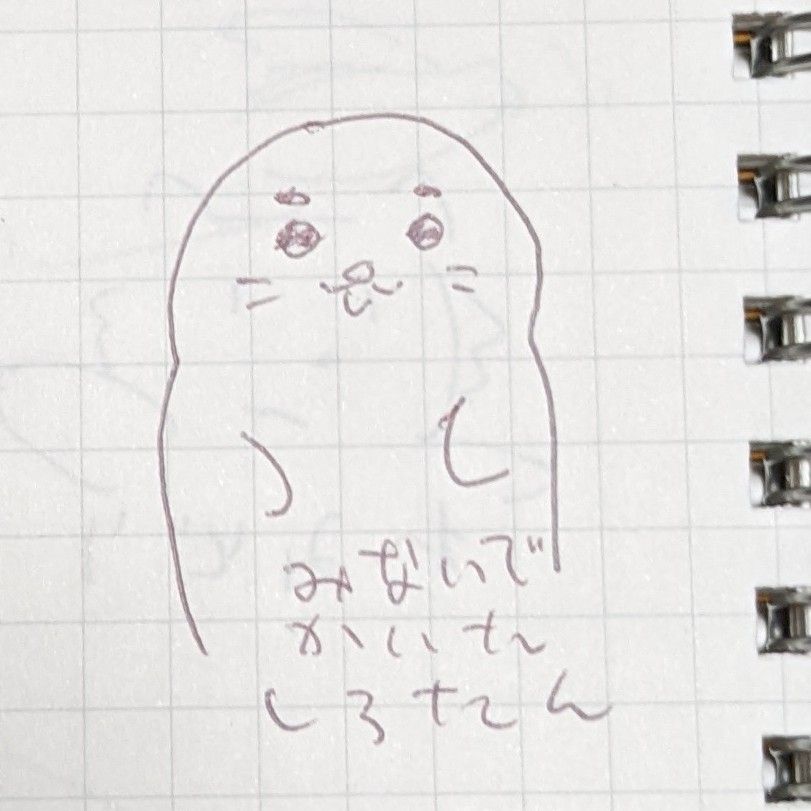 みないで
かいた
しろたん